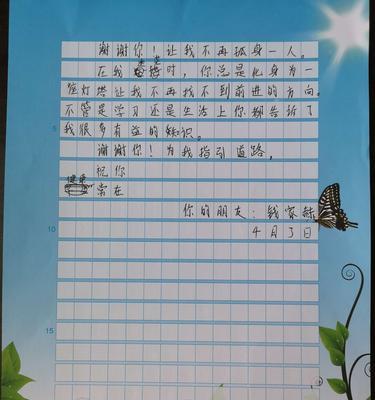 谢谢你！让我不再孤身一人。
在我迷茫时，你总是化身为一
座灯塔让我不再找不到前进的方向。
不管是学习还是生活上你都告诉了
5
我很多有益的知识。
谢谢你！为我指引道路，
祝你
健康
常在
你的朋友：钱容赫
10
4月3日
15